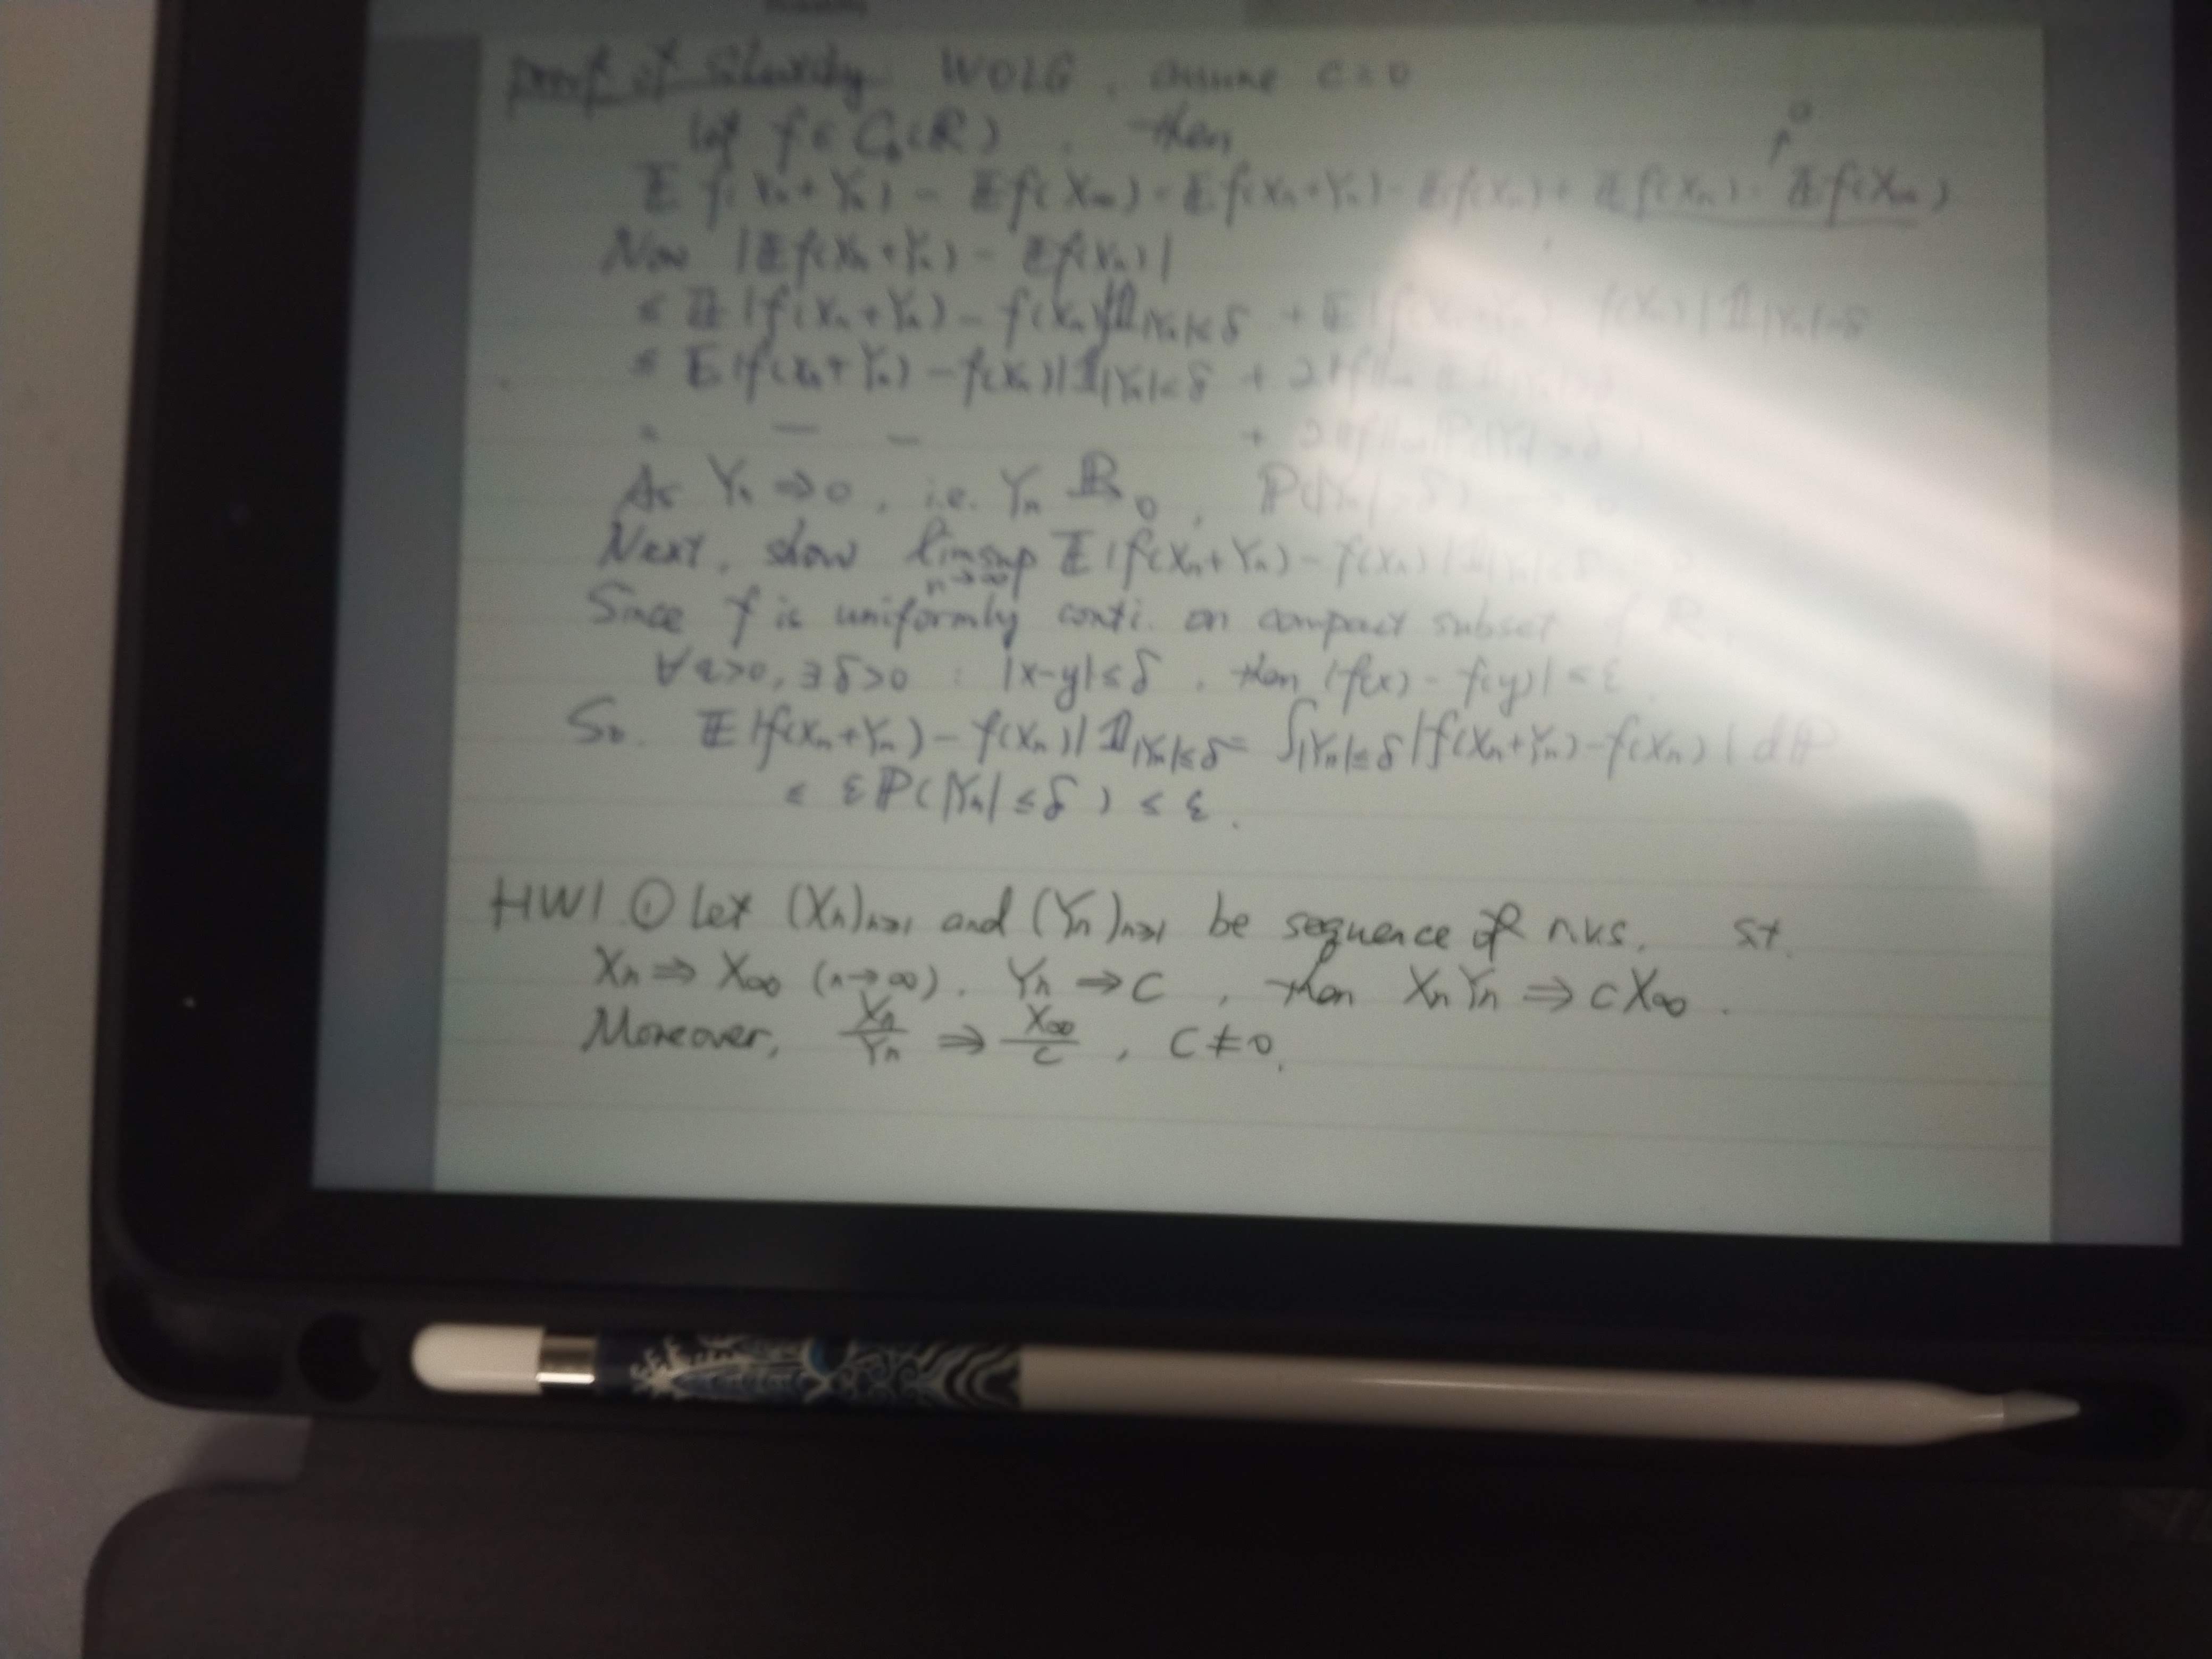 Proof of Slutsky WOLG, assume c = 0
Let f ∈ C_b(ℝ), then
𝔼 f(Xn + Yn) - 𝔼f(X∞) = 𝔼f(Xn+Yn) - 𝔼f(Xn) + 𝔼f(Xn) - 𝔼f(X∞) → 0
Now |𝔼f(Xn+Yn) - 𝔼f(Xn)|
≤ 𝔼|f(Xn+Yn) - f(Xn)|𝟙|Yn|≤δ + 𝔼|f(Xn+Yn) - f(Xn)|𝟙|Yn|>δ
≤ 𝔼|f(Xn+Yn) - f(Xn)|𝟙|Yn|≤δ + 2
= — — + 2
As Yn ⇒ 0, i.e. Yn ℙ→ 0, ℙ(|Yn|>δ)
Next, show limsup n→∞ 𝔼|f(Xn+Yn) - f(Xn)|𝟙|Yn|≤δ
Since f is uniformly conti. on compact subset of ℝ,
∀ε>0, ∃δ>0 : |x-y|≤δ, then |f(x) - f(y)| < ε
So. 𝔼|f(Xn+Yn) - f(Xn)|𝟙|Yn|≤δ = ∫|Yn|≤δ |f(Xn+Yn) - f(Xn)| dℙ
≤ εℙ(|Yn| ≤ δ) ≤ ε.
HW1 ① Let (Xn)n≥1 and (Yn)n≥1 be sequence of r.v.s. st.
Xn ⇒ X∞ (n→∞). Yn ⇒ c, then XnYn ⇒ cX∞.
Moreover, Xn/Yn ⇒ X∞/c, C ≠ 0.